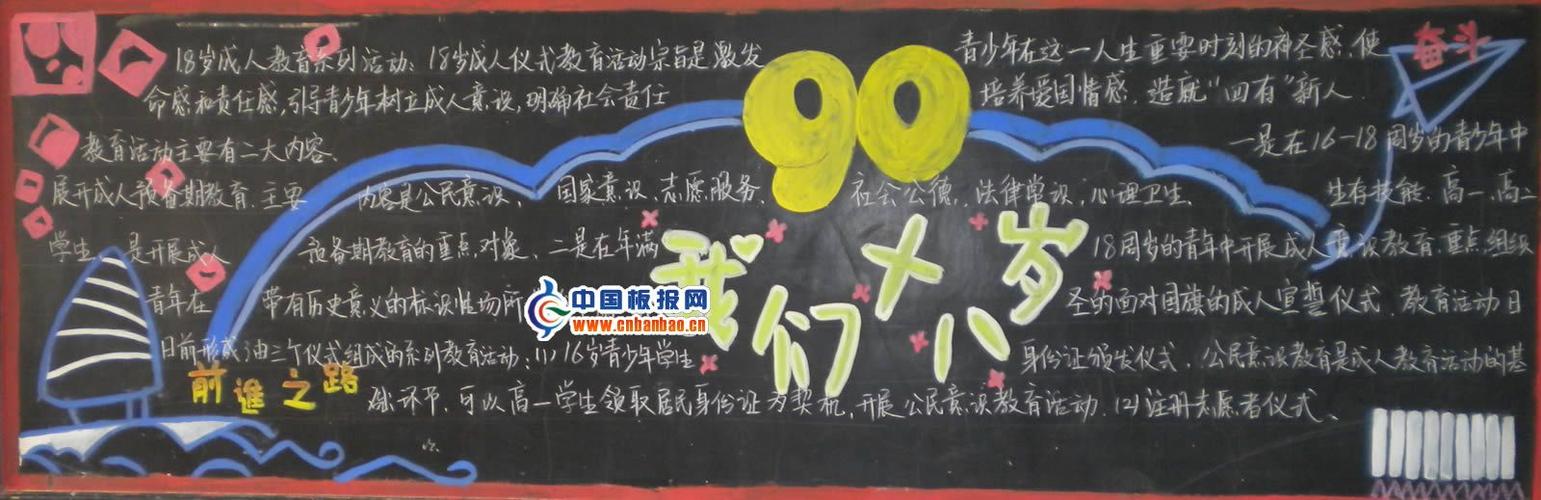 18岁成人教育系列活动：18岁成人仪式教育活动宗旨是激发
青少年在这一人生重要时刻的神圣感，使
命感和责任感，引导青少年树立成人意识，明确社会责任
培养爱国情感，造就“四有”新人.
教育活动主要有二大内容、
一是在16-18周岁的青少年中
展开成人预备期教育.主要 内容是公民意识、国家意识、志愿服务、社会公德、法律常识，心理卫生、生存技能.高一、高二
学生 是开展成人 预备期教育的重点对象、二是在年满 18周岁的青年中开展成人意识教育.重点组织
青年在 带有历史意义的标识性场所 圣的面对国旗的成人宣誓仪式 教育活动日
日前形成油三个仪式组成的系列教育活动：(1)16岁青少年学生 身份证颁发仪式，公民意识教育是成人教育活动的基
础环节，可以高一学生领取居民身份证为契机，开展公民意识教育活动.(2)注册志愿者仪式、
90
我们十八岁
奋斗
前進之路
中国板报网
www.cnbanbao.cn